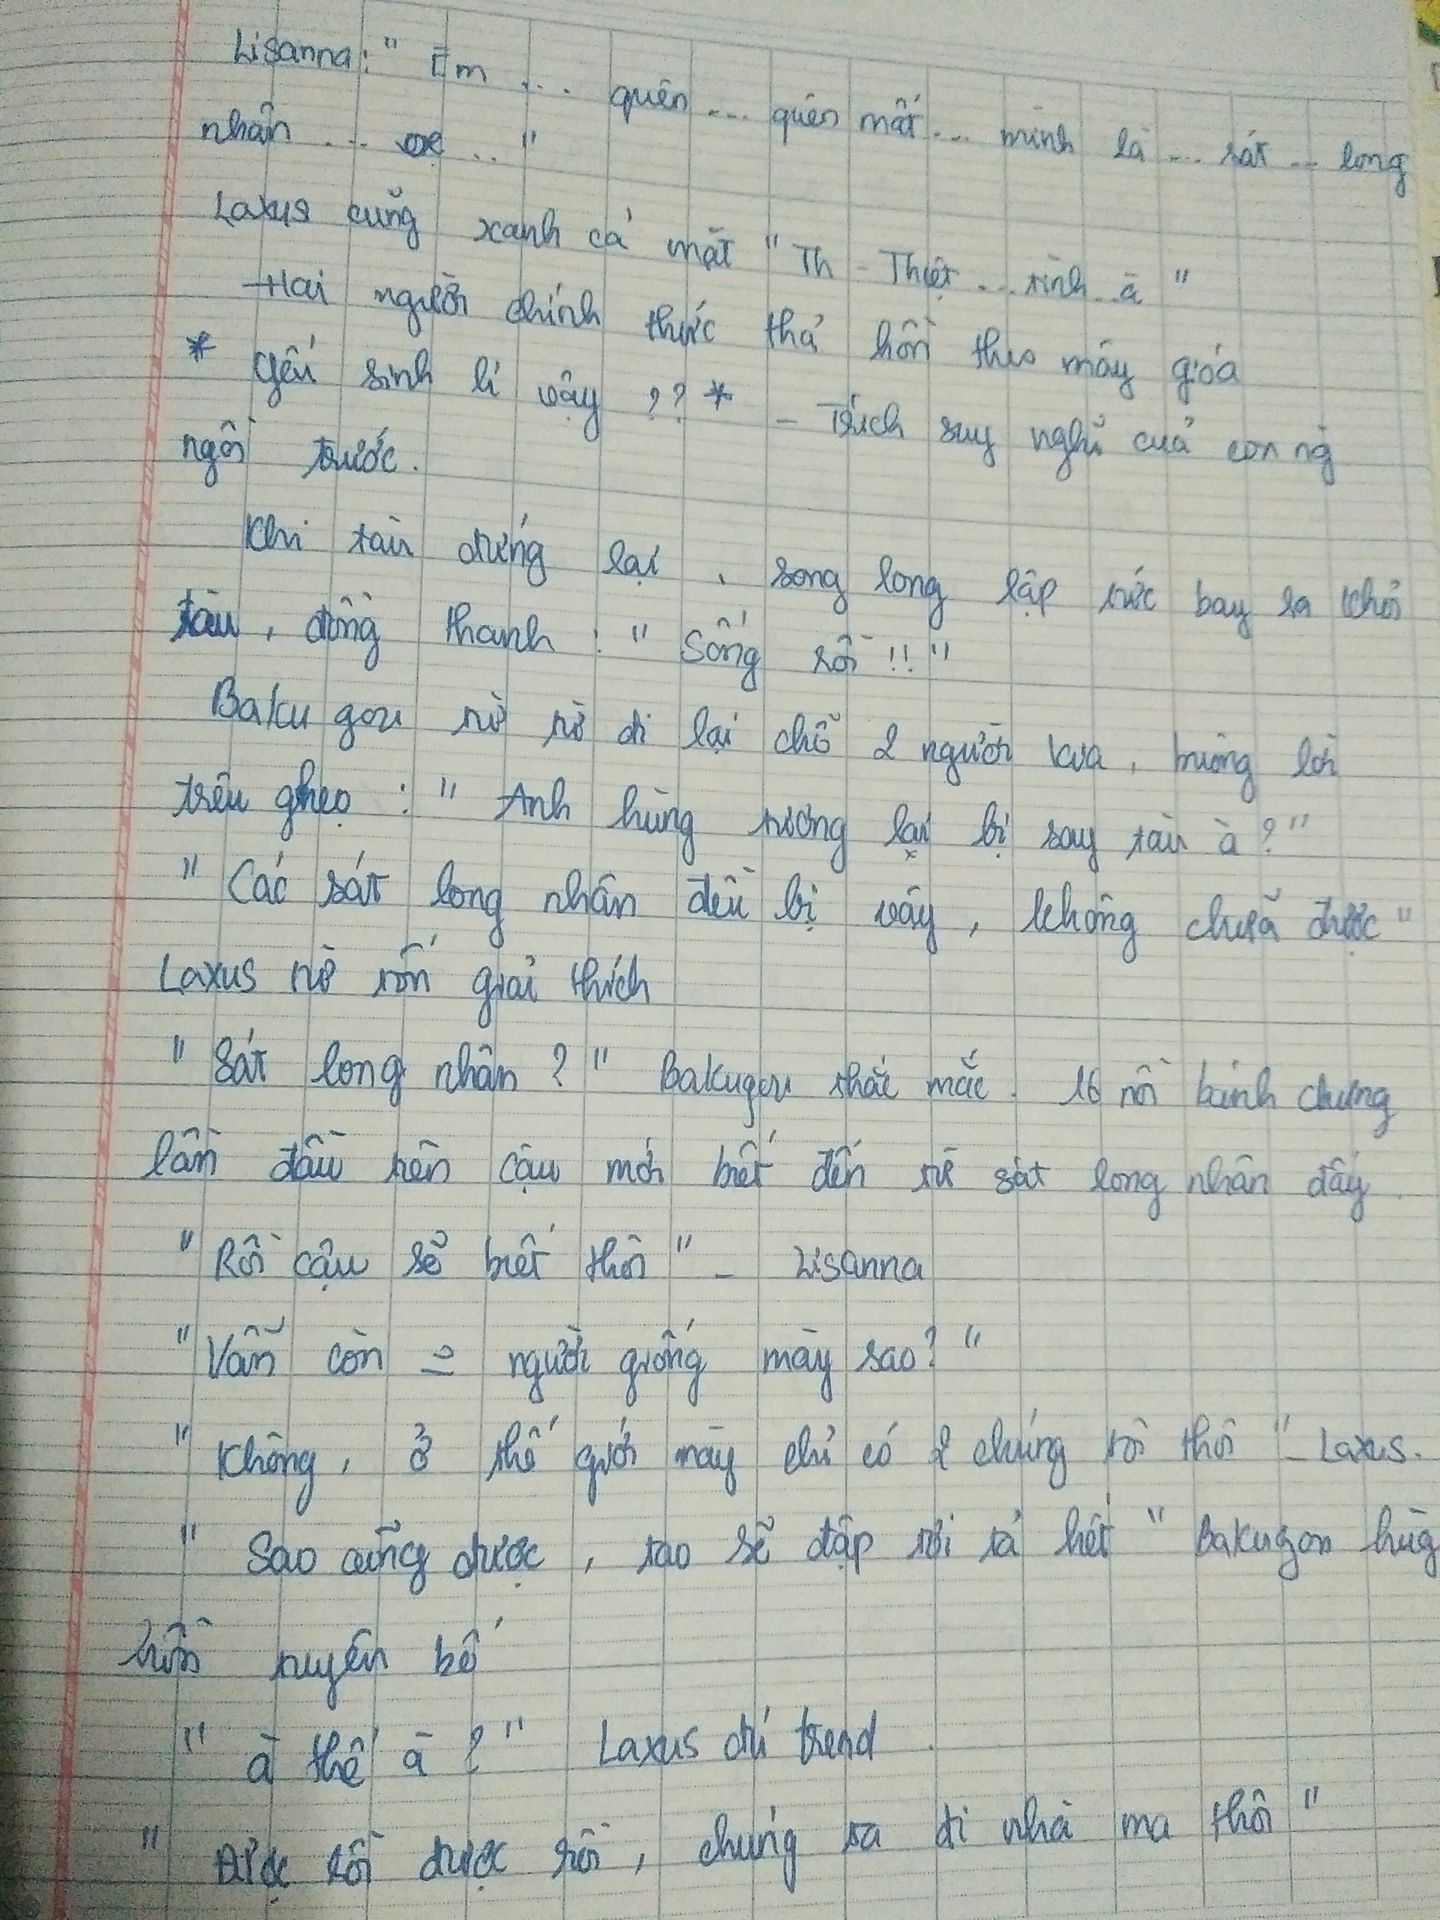 Lisanna: " Em ... quên ... quên mất ... mình là ... sát ... long
nhân ... oẹ ... "
Laxus cũng xanh cả mặt " Th - Thiệt ... tình .. à "
Hai người chính thức thả hồn theo mây gióa
* Yếu sinh lí vậy ?? * - Trích suy nghĩ cuả con ng
ngồi trước.
Khi tàu dừng lại , song long lập tức bay ra khỏi
tàu , đồng thanh : " Sống rồi !! "
Bakugou từ từ đi lại chỗ 2 người kia , buông lời
trêu ghẹo : " Anh hùng tương lại bị say tàu à ? "
" Các sát long nhân đều bị vậy , không chưã được "
Laxus từ tốn giải thích
" Sát long nhân ? " Bakugou thắc mắc . 16 nồi bánh chưng
lần đầu tiên cậu mới biết đến từ sát long nhân đấy .
" Rồi cậu sẽ biết thôi " - Lisanna
" Vẫn còn = người giống mày sao ? "
" Không , ở thế giới này chỉ có 2 chúng tôi thôi " - Laxus .
" Sao cũng được , tao sẽ đập tơi tả hết " Bakugou hùg
hồn tuyên bố
" à thế à ? " Laxus đú trend .
" Được rồi được rồi , chúng ta đi nhà ma thôi "